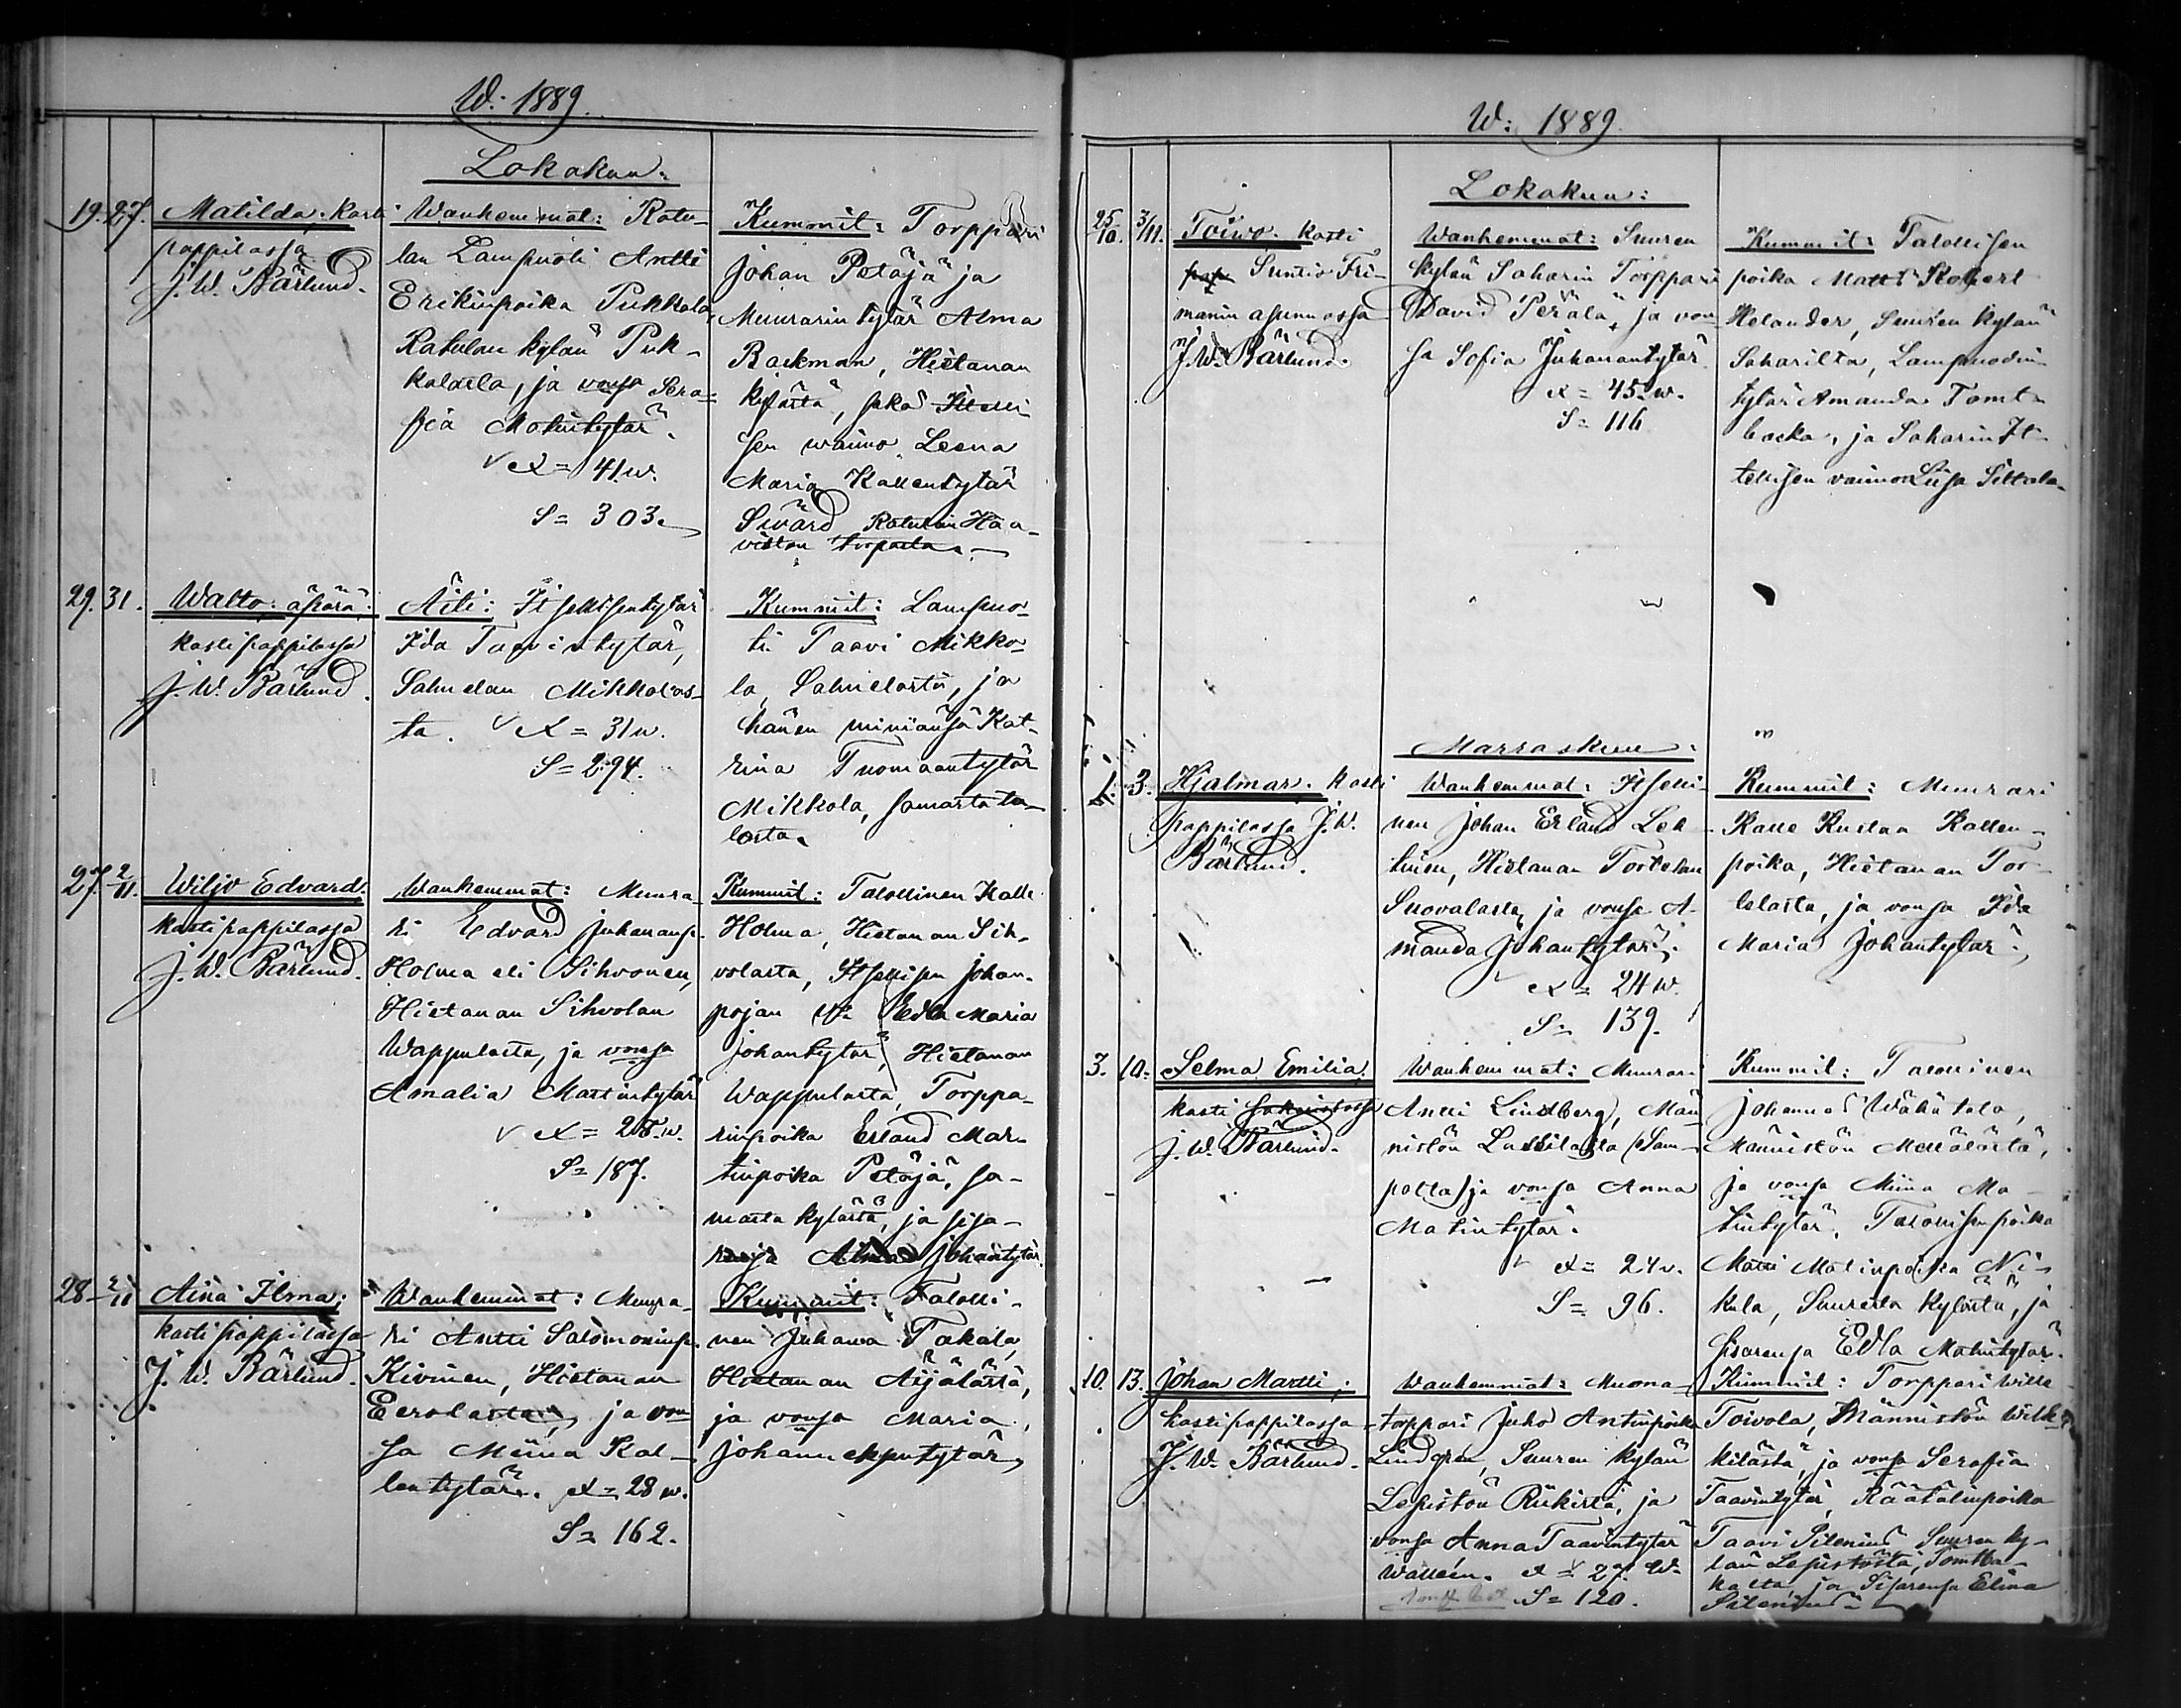 W: 1889.
Lokakuu:
19. 27. Matilda. kasti
pappilassa
J. W. Bärlund.
Wanhemmat: Ratu-
lan Lampuoti Antti
Erikinpoika Pukkala,
Ratulan kylän Puk-
kalasta, ja vonsa Sera-
fia Matintytär.
Ä = 41 w.
S = 303.
Kummit: Torppari
Johan Petäjä ja
Muurarin tytär Alma
Backman, Hietanan
kylästä, sekä Itselli-
sen waimo Leena
Maria Kallentytär
Swärd Ratulan Haa-
viston torpasta.
29. 31. Walto: äpärä:
kasti pappilassa
J. W. Bärlund.
Äiti: Itsellisentytär
Ida Taavintytär,
Salmelan Mikkolas-
ta. Ä = 31 w.
S = 294.
Kummit: Lampuo-
ti Taavi Mikko-
la, Salmelasta, ja
hänen miniänsä Kat-
rina Tuomaantytär
Mikkola, samasta ta-
losta.
27. 2/11. Wiljo Edvard.
kasti pappilassa
J. W. Bärlund.
Wanhemmat: Muura-
ri Edvard Juhananp.
Holma eli Sihvonen,
Hietanan Sihvolan
Wappulasta, ja vonsa
Amalia Martintytär
Ä = 28 w.
S = 187.
Kummit: Talollinen Kalle
Holma, Hietanan Sih-
volasta, Itsellisen Johan-
pojan Edla Maria
Johantytär, Hietanan
Wappulasta, Torppa-
rinpoika Erland Mar-
tinpoika Petäjä, sa-
masta kylästä, ja sisa-
rensa Alma Johantytär.
28 2/11 Aina Ilma;
kasti pappilassa
J. W. Bärlund.
Wanhemmat: Muura-
ri Antti Salomoninp.
Kivinen, Hietanan
Eerolasta, ja von-
sa Miina Kal-
lentytär. Ä = 28 w.
S = 162.
Kummit: Talolli-
nen Juhana Takala,
Hietanan Äijälästä,
ja vonsa Maria
Johanneksentytär,
W: 1889.
Lokakuu:
25/10. 3/11. Toiwo. kasti
Suntio Fri-
manin asunnossa
J. W. Bärlund.
Wanhemmat: Suuren
kylän Saharin Torppari
David Perälä, ja von-
sa Sofia Juhanantytär
Ä = 45 w.
S = 116
Kummit: Talollisen
poika Matts Robert
Helander, Suuren kylän
Saharilta, Lampuodin
tytär Amanda Tomt-
backa, ja Saharin It-
tellisen vaimo Liisa Siltala.
Marraskuu:
1. 3. Hjalmar. kasti
pappilassa J. W.
Bärlund.
Wanhemmat: Itselli-
nen Johan Erland Leh-
tinen, Hietanan Tortelan
Suovalasta, ja vonsa A-
manda Johantytär:
Ä = 24 w.
S = 139.
Kummit: Muurari
Kalle Kustaa Kallen-
poika, Hietanan Tor-
telasta, ja vonsa Ida
Maria Johantytär,
3. 10. Selma Emilia.
kasti
J. W. Bärlund.
Wanhemmat: Muurari
Antti Lindberg, Män-
nistön Lassilasta
ja vonsa Anna
Matintytär.
Ä = 24 v.
S = 96.
Kummit: Talollinen
Johannes Wähätalo,
Männistön Mellälästä,
ja vonsa Miina Ma-
tintytär, Talollisenpoika
Matti Matinpoika Ni-
kula, Suuresta kylästä, ja
sisarensa Edla Matintytär.
10. 13. Johan Martti;
kasti pappilassa
J. W. Bärlund.
Wanhemmat: Muona-
torppari Juho Antinpoika
Lindgren, Suuren kylän
Lepistön Riikistä, ja
vonsa Anna Taavintytär
Wallein. Ä = 27 w.
S = 120.
Kummit: Torppari Wille
Toivola, Männistön Wilk-
kilästä, ja vonsa Serafia
Taavintytär, Räätälinpoika
Taavi Silenius Suuren ky-
län Lepistöstä, Tomtba-
kasta, ja Sisarensa Elina
Silenius